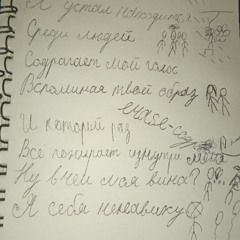 Я устал находиться
Среди людей
Содрагает мой голос
Вспоминая твой образ
И который раз
Все пожирает изнутри меня
Ну в чем моя вина?
Я себя ненавижу